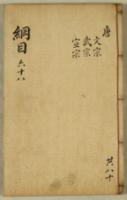 唐
文宗
武宗
宣宗
綱目
六十八
共八十